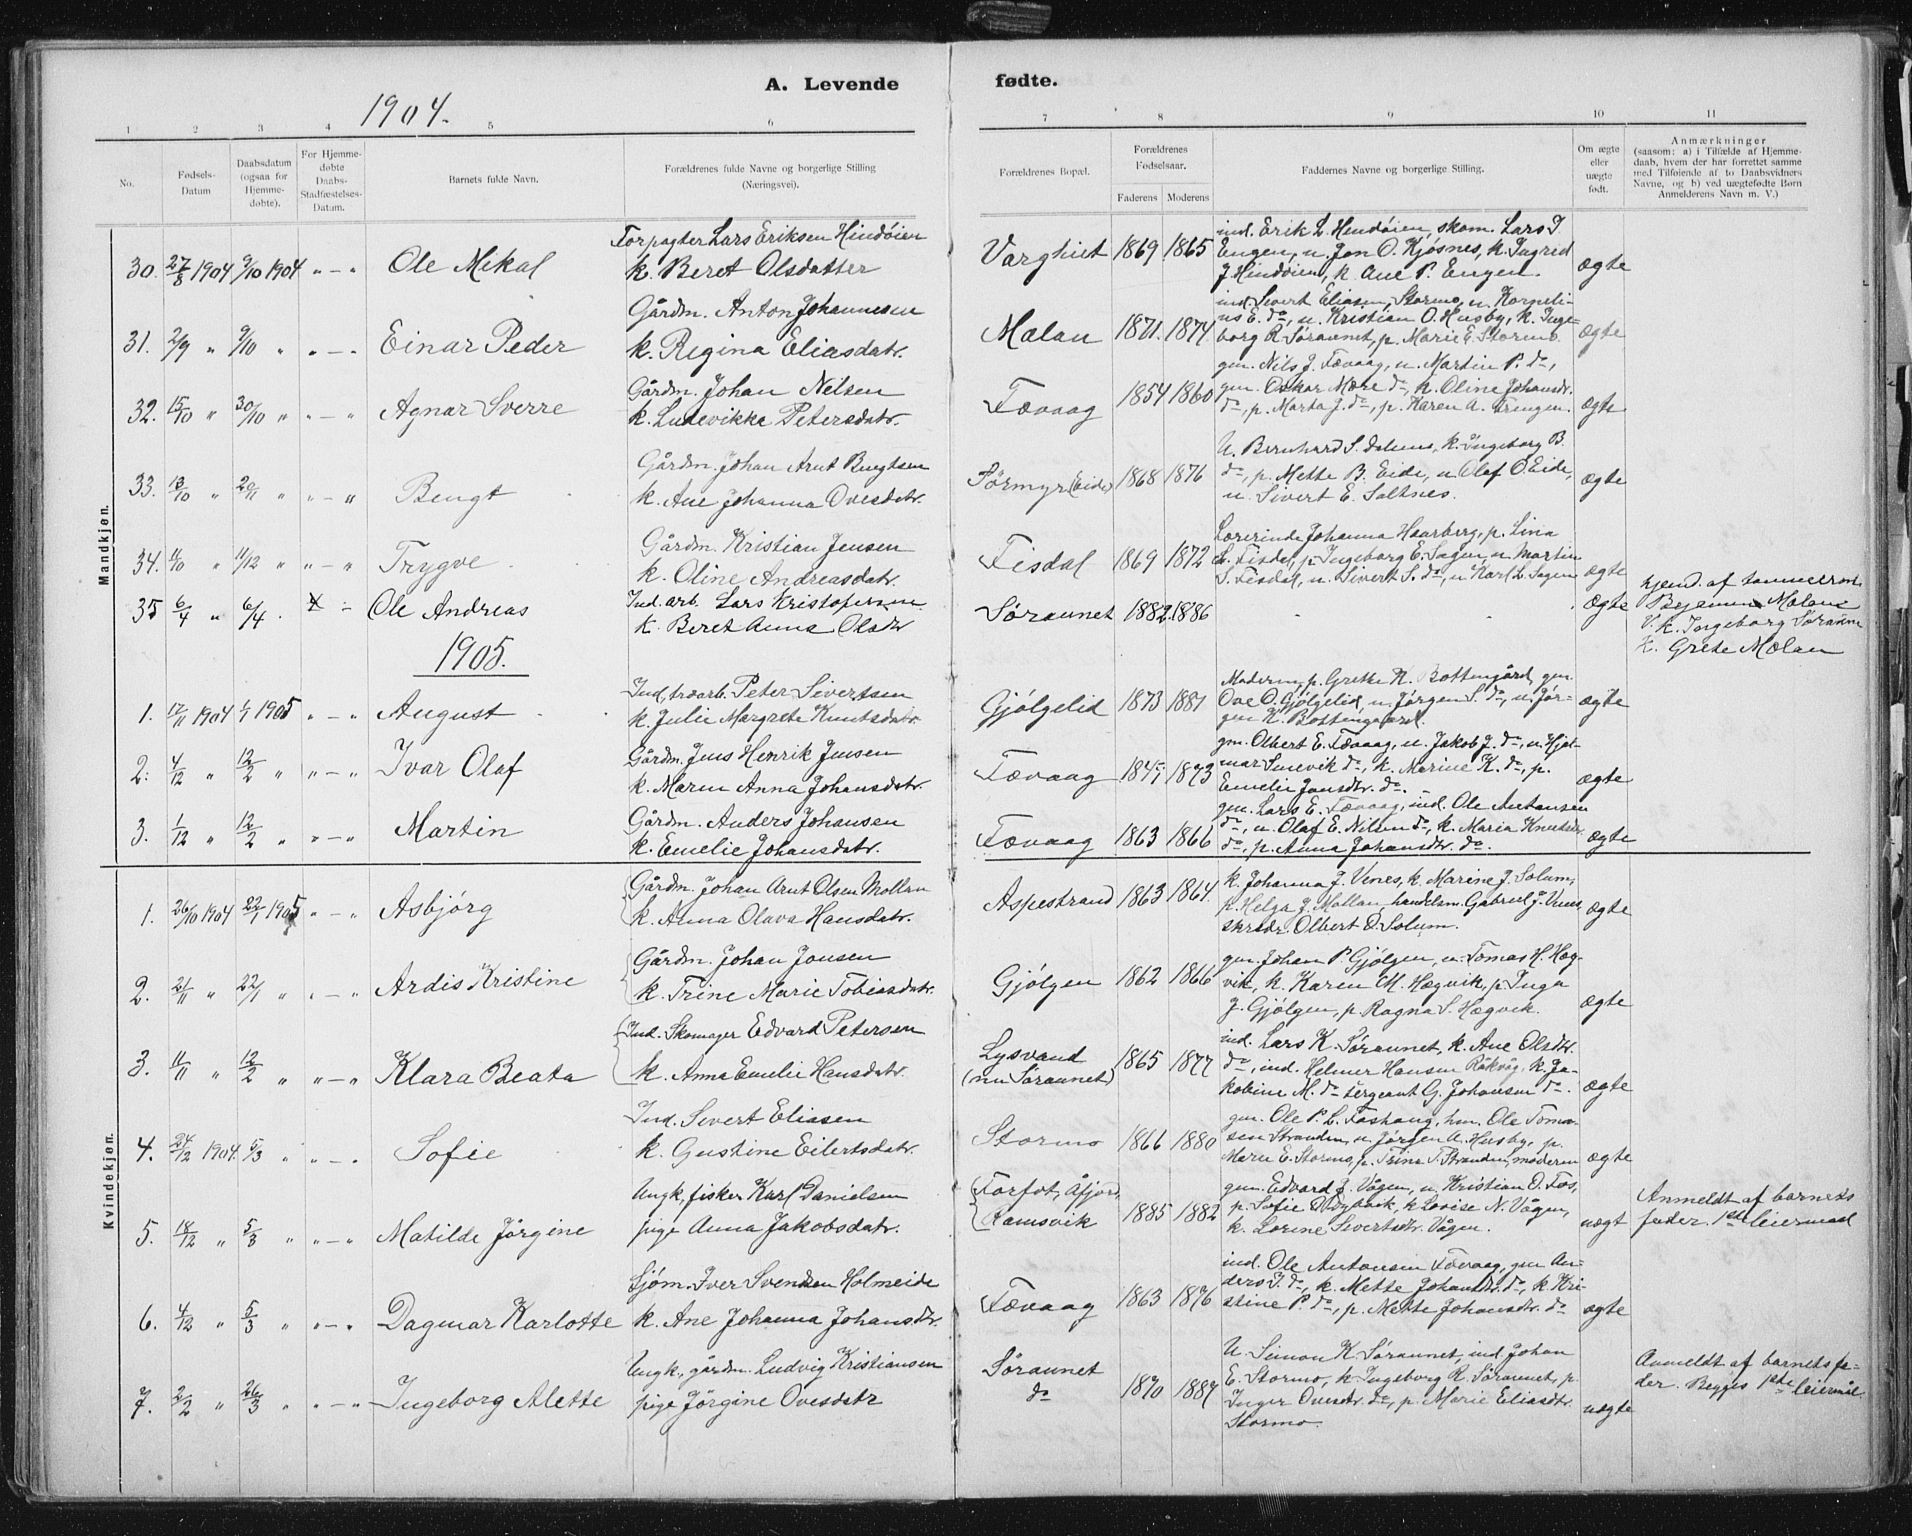 A. Levende fødte.
1904.
1 2 3 4 5 6 7 8 9 10 11
No.
Fødsels-
Datum
Daabsdatum
(ogsaa for
Hjemme-
døbte).
For Hjemme-
døbte
Daabs-
Stadfæstelses-
Datum.
Barnets fulde Navn.
Forældrenes fulde Navne og borgerlige Stilling
(Næringsvei).
Forældrenes Bopæl.
Forældrenes
Fødselsaar.
Faderens Moderens
Faddernes Navne og borgerlige Stilling.
Om ægte
eller
uægte
født.
Anmærkninger
(saasom: a) i Tilfælde af Hjemme-
daab, hvem der har forrettet samme
med Tilføiende af to Daabsvidners
Navne, og b) ved uægtefødte Børn
Anmelderens Navn m. V.)
Mandkjøn.
30. 27/8 1904 9/10 1904 „ – „ Ole Mekal
Forpagter Lars Eriksen Hindøien
k. Beret Olsdatter
Varghiet 1869 1865
ind. Erik L. Hindøien, skom. Lars J.
Engen, u. Jon O. Kjøsnes, k. Ingrid
J. Hindøien, k. Ane P. Engen.
ægte
31. 2/9 „ 9/10 „ „ – „ Einar Peder
Gårdm. Anton Johannesen
k. Regina Eliasdatr.
Mælan 1871. 1874.
ind. Sivert Eliasen Stormo, u. Korneli-
us E. do, u. Kristian O. Husby, k. Inge-
borg R. Søraunet, p. Marie E. Stormo.
ægte
32. 15/10 „ 30/10 „ „ – „ Agnar Sverre
Gårdm. Johan Nilsen
k. Ludevikke Petersdatr.
Fævaag 1854 1860
gm. Nils J. Fævaag, u. Martin P. do,
gm. Oskar Mære do, k. Oline Johansdr.
do, p. Marta J. do, p. Karen A. Frengen.
ægte
33. 13/10 „ 20/11 „ „ – „ Bengt
Gårdm. Johan Arnt Bengtsen
k. Ane Johanna Ovesdatr.
Tørmyr (Eide) 1868 1876
U. Bernhard S. Dalene, k. Ingeborg B.
do, p. Mette B. Eide, u. Olaf O. Eide,
u. Sivert E. Saltnes.
ægte
34. „ 11/12 „ „ – „ Trygve
Gårdm. Kristian Jensen
k. Oline Andreasdatr.
Fisdal 1869 1872
Lærerinde Johanna Haarberg, p. Lina
L. Fisdal, p. Ingeborg E. Sagen, u. Martin
S. Fisdal, u. Sivert S. do, u. Karl L. Sagen
ægte
35 6/4 „ 6/4. Ole Andreas
Ind. arb. Lars Kristofersen
k. Beret Anna Olsdr
Søraunet 1882. 1886
ægte
hjemd. af
Mælan
V. k. Ingeborg Søraunet
k. Grete Mælan
1905.
1. 17/11 1904 1/1 1905 „ – „ August
Ind, træarb. Peter Sivertsen
k. Julie Margrete Knutsdatr.
Gjølgelid 1873 1881
Moderen, p. Grethe K. Bottengård, gm.
Ove O. Gjølgelid, u. Jørgen S. do, u. Jør-
gen K. Bottengaard.
ægte
2. 4/12 „ 12/2 „ „ – „ Ivar Olaf
Gårdm. Jens Henrik Jensen
k. Maren Anna Johansdatr.
Fævaag 1873
gm. Olbert E. Fævaag, u. Jakob J. do, u. Hjal-
mar Snevik do, k. Marine K. do, p.
Emelie Jonsdtr. do.
ægte
3. 1/12 „ 12/2 „ „ – „ Martin
Gårdm. Anders Johansen
k. Emelie Johansdatr.
Fævaag 1863 1866
gm. Lars E. Fævaag, ind. Ole Antonsen
do, u. Olaf E. Nilsen do, k. Maria Knutsdr.
do, p. Anna Johansdtr. do.
ægte
Kvindekjøn.
1. 26/10 1904 22/1 1905 „ – „ Asbjørg
Gårdm. Johan Arnt Olsen Mollan
k. Anna Olava Hansdatr.
Aspestrand 1863 1864.
k. Johanna J. Venes, k. Marine J. Solum,
p. Helga J. Mollan, handelsm. Gabriel J. Venes,
skrædr. Olbert D. Solum.
ægte
2. 21/11 „ 22/1 „ „ – „ Ardis Kristine
Gårdm. Johan Jonsen
k. Trine Marie Tobiasdatr.
Gjølgen 1862 1866
gm. Johan P. Gjølgen, u. Tomas H. Hæg-
vik, k. Karen M. Hægvik, p. Inga
J. Gjølgen, p. Ragna S. Hægvik.
ægte
3. 11/11 „ 12/2 „ „ – „ Klara Beata
Ind. Skomager Edvard Petersen
k. Anna Emelie Hansdatr.
Lysvand
(nu Søraunet) 1865 1877
ind. Lars K. Søraunet, k. Ane Olsdtr.
do, ind. Helmer Hansen Råkvåg, k. Ja-
kobine M. do sergeant G. Johansen do.
ægte
4. 24/12 1904. 5/3 „ „ – „ Sofie
Ind. Sivert Eliasen
k. Gustine Eilertsdatr.
Stormo 1866 1880
gm. Ole P. L. Foshaug, hm. Ole Toma-
sen Stranden, u. Jørgen A. Husby, p.
Maren E. Stormo, p. Trine T. Stranden, moderen
ægte
5. 18/12 „ 5/3 „ „ – „ Matilde Jørgine
Ungk, fisker Karl Danielsen
pige Anna Jakobsdatr.
Forfot, Åfjord,
Ramsvik 1885 1882
gm. Edvard J. Vågen, u. Kristian O. Fos,
p. Sofie Rydvik, k. Lovise N. Vågen,
k. Lorine Sivertsdtr. Vågen.
uægt
Anmeldt af barnets
fader. 1ste leiermaal
6. 4/12 „ 5/3 „ „ – „ Dagmar Karlotte
Sjøm. Iver Svendsen Holmeide
k. Ane Johanna Johansdtr.
Fævaag 1863 1876
ind. Ole Antonsen Fævaag, gm An-
ders J. do, k. Mette Johansdtr. do, k. Kri-
stine P. do, p. Mette Johansdtr. do
ægte
7. 2/2 „ 26/3 „ „ – „ Ingeborg Alette
Ungk, gårdm. Ludvig Kristiansen
pige Jørgine Ovesdatr
Søraunet
do 1870 1887
U. Simon K. Søraunet, ind. Johan
E. Stormo, k. Ingeborg R. Søraunet, p.
Inger Ovesdtr. do, p. Marie Eliasdtr.
Stormo.
uægte
Anmeldt af barnets fa-
der. Begges 1ste leiermål